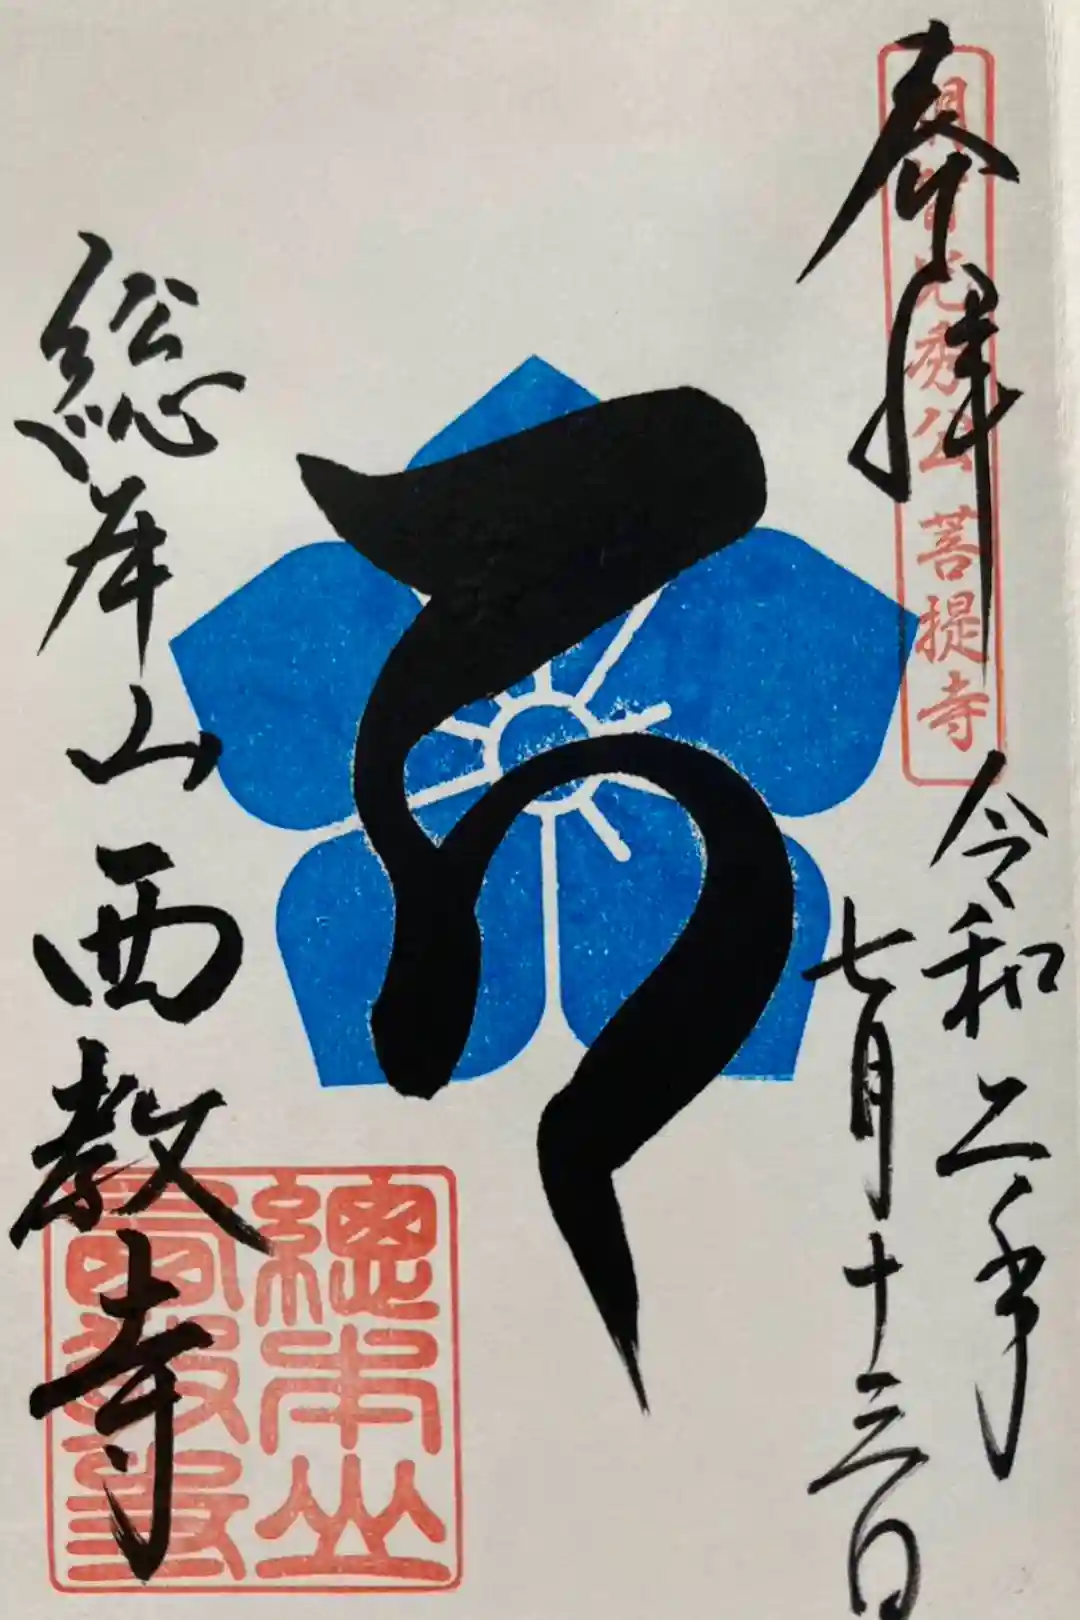 奉拝
明智光秀公菩提寺
令和二年
七月十三日
総本山西教寺
總本山